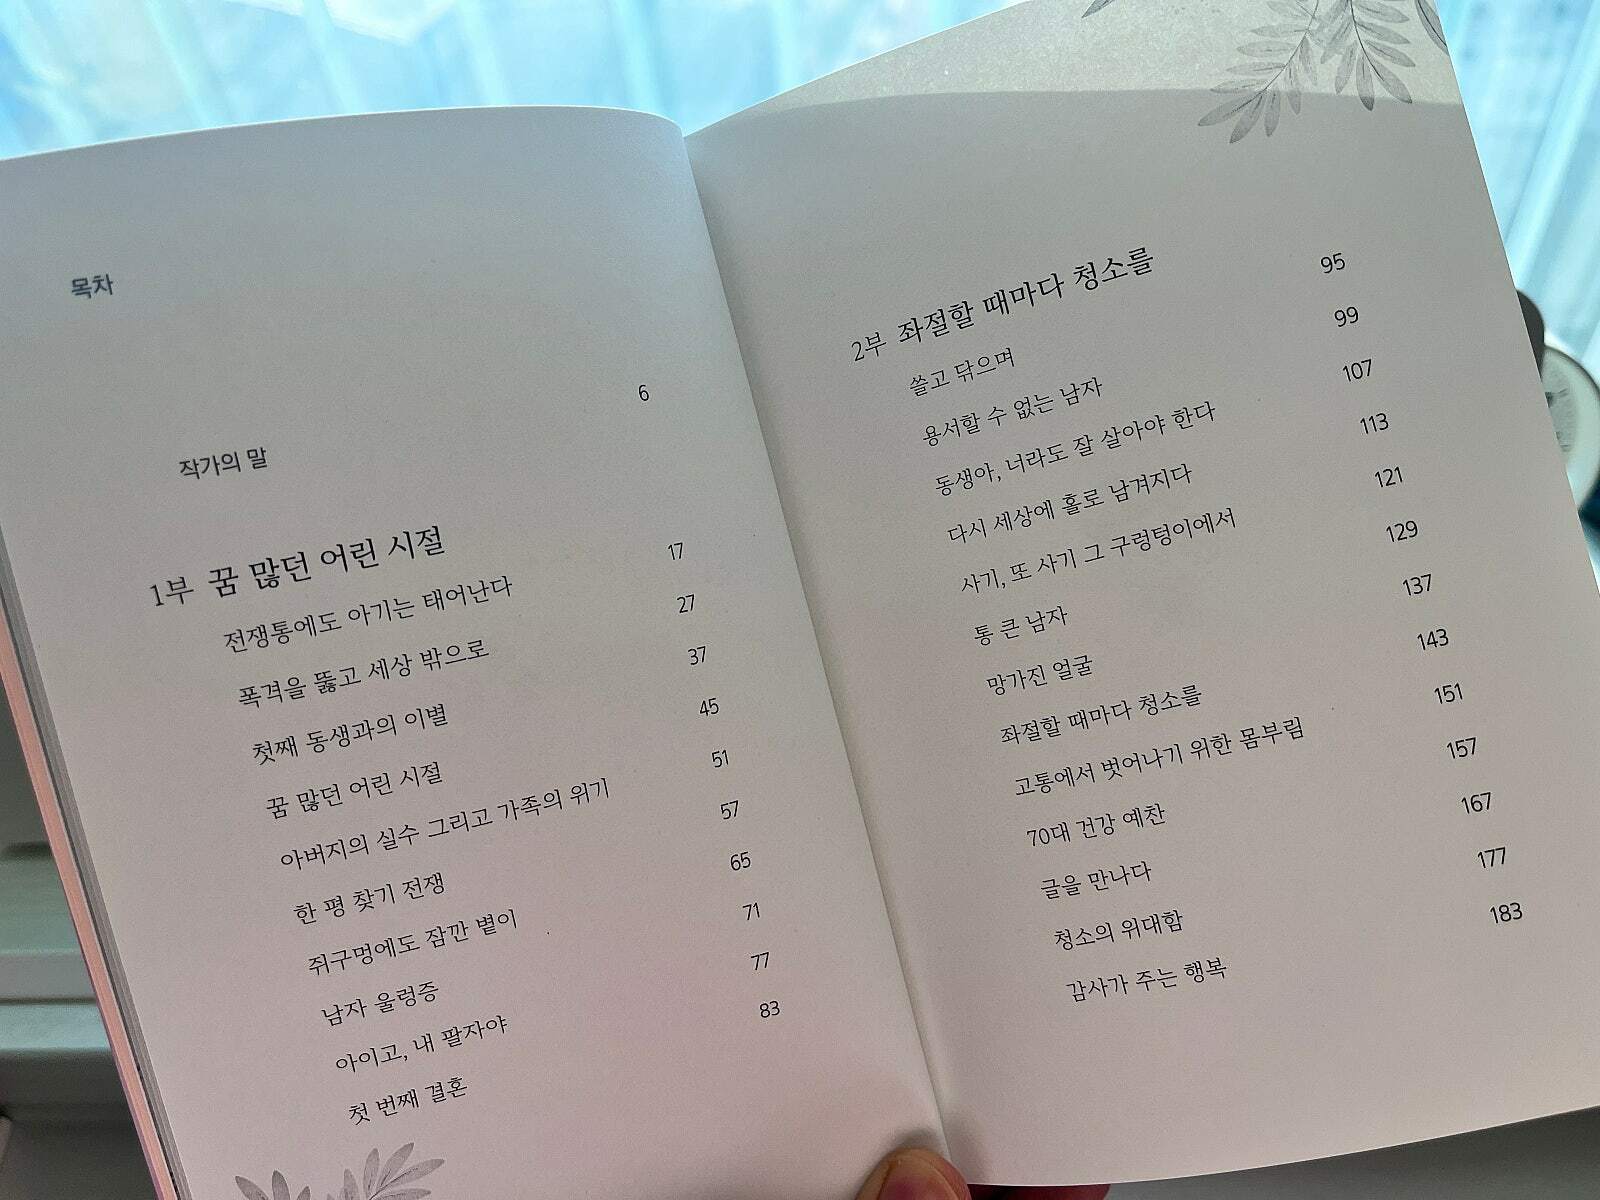 목차
작가의 말 6
1부 꿈 많던 어린 시절
전쟁통에도 아기는 태어난다 17
폭격을 뚫고 세상 밖으로 27
첫째 동생과의 이별 37
꿈 많던 어린 시절 45
아버지의 실수 그리고 가족의 위기 51
한 평 찾기 전쟁 57
쥐구멍에도 잠깐 볕이 65
남자 울렁증 71
아이고, 내 팔자야 77
첫 번째 결혼 83
2부 좌절할 때마다 청소를
쓸고 닦으며 95
용서할 수 없는 남자 99
동생아, 너라도 잘 살아야 한다 107
다시 세상에 홀로 남겨지다 113
사기, 또 사기 그 구렁텅이에서 121
통 큰 남자 129
망가진 얼굴 137
좌절할 때마다 청소를 143
고통에서 벗어나기 위한 몸부림 151
70대 건강 예찬 157
글을 만나다 167
청소의 위대함 177
감사가 주는 행복 183